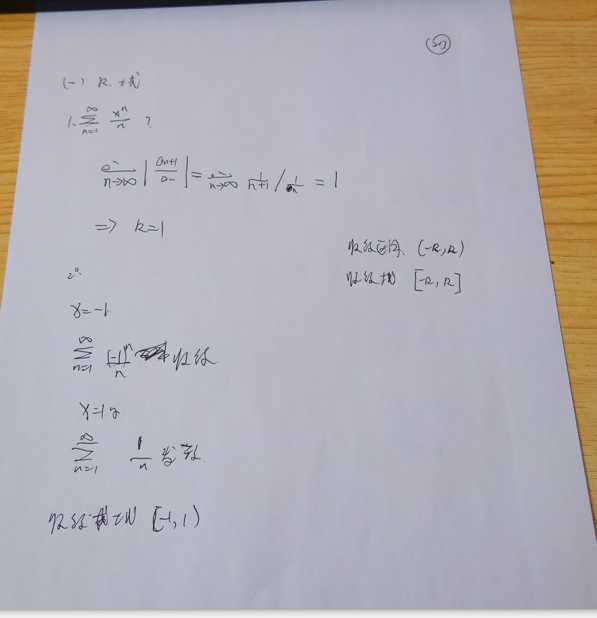 (一) R 求
1. ∑_{n=1}^{∞} x^n/n ?
lim_{n→∞} |a_{n+1}/a_n| = lim_{n→∞} 1/(n+1) / 1/n = 1
=> R=1
收敛区间 (-R,R)
收敛域 [-R,R]
2°
x=-1
∑_{n=1}^{∞} (-1)^n/n 收敛
x=1
∑_{n=1}^{∞} 1/n 发散
收敛域 [-1,1)